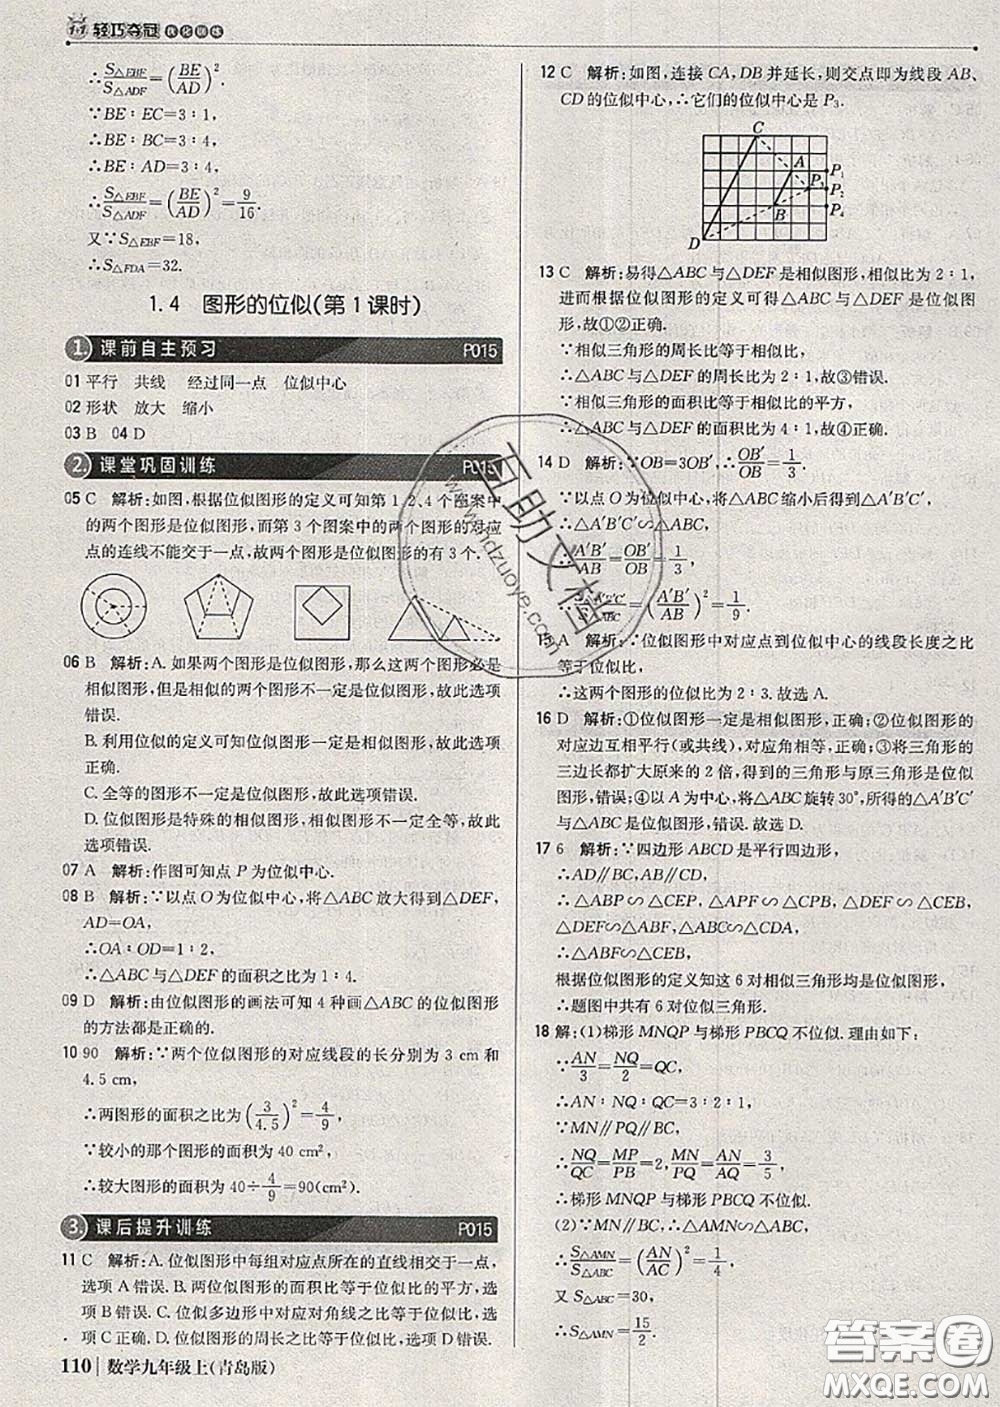 1+1 轻巧夺冠 优化训练
∴S△EBF/S△ADF=(BE/AD)².
∵BE∶EC=3∶1,
∴BE∶BC=3∶4,
∴BE∶AD=3∶4,
∴S△EBF/S△ADF=(BE/AD)²=9/16.
又∵S△EBF=18,
∴S△FDA=32.
1.4 图形的位似(第1课时)
1. 课前自主预习 P015
01 平行 共线 经过同一点 位似中心
02 形状 放大 缩小
03 B 04 D
2. 课堂巩固训练 P015
05 C 解析:如图,根据位似图形的定义可知第1、2、4个图案中
的两个图形是位似图形,而第3个图案中的两个图形的对应
点的连线不能交于一点,故两个图形是位似图形的有3个.
06 B 解析:A.如果两个图形是位似图形,那么这两个图形必是
相似图形,但是相似的两个图形不一定是位似图形,故此选项
错误.
B.利用位似的定义可知位似图形一定有位似中心,故此选项
正确.
C.全等的图形不一定是位似图形,故此选项错误.
D.位似图形是特殊的相似图形,相似图形不一定全等,故此
选项错误.
07 A 解析:作图可知点P为位似中心.
08 B 解析:∵以点O为位似中心,将△ABC放大得到△DEF,
AD=OA,
∴OA∶OD=1∶2,
∴△ABC与△DEF的面积之比为1∶4.
09 D 解析:由位似图形的画法可知4种画△ABC的位似图形
的方法都是正确的.
10 90 解析:∵两个位似图形的对应线段的长分别为3 cm和
4.5 cm,
∴两图形的面积之比为(3/4.5)²=4/9,
∵较小的那个图形的面积为40 cm²,
∴较大图形的面积为40÷4/9=90(cm²).
3. 课后提升训练 P015
11 C 解析:A.位似图形中每组对应点所在的直线相交于一点,
选项A错误.B.两位似图形的面积比等于位似比的平方,选
项B错误.C.位似多边形中对应对角线之比等于位似比,选
项C正确.D.位似图形的周长之比等于位似比,选项D错误.
110 数学九年级上(青岛版)
12 C 解析:如图,连接CA,DB并延长,则交点即为线段AB、
CD的位似中心,∴它们的位似中心是P₃.
C
A
P₁
P₃
P₂
B
P₄
D
13 C 解析:易得△ABC与△DEF是相似图形,相似比为2∶1,
进而根据位似图形的定义可得△ABC与△DEF是位似图
形,故①②正确.
∵相似三角形的周长比等于相似比,
∴△ABC与△DEF的周长比为2∶1,故③错误.
∵相似三角形的面积比等于相似比的平方,
∴△ABC与△DEF的面积比为4∶1,故④正确.
14 D 解析:∵OB=3OB′,∴OB′/OB=1/3.
∵以点O为位似中心,将△ABC缩小后得到△A′B′C′,
∴△A′B′C′∽△ABC,
∴A′B′/AB=OB′/OB=1/3,
∴S△A′B′C′/S△ABC=(A′B′/AB)²=1/9.
15 A 解析:∵位似图形中对应点到位似中心的线段长度之比
等于位似比,
∴这两个图形的位似比为2∶3.故选A.
16 D 解析:①位似图形一定是相似图形,正确;②位似图形的
对应边互相平行(或共线),对应角相等,正确;③将三角形的
三边长都扩大原来的2倍,得到的三角形与原三角形是位似
图形,错误;④以A为中心,将△ABC旋转30°,所得的△A′B′C′
与△ABC是位似图形,错误.故选D.
17 6 解析:∵四边形ABCD是平行四边形,
∴AD∥BC,AB∥CD,
∴△ABP∽△CEP,△APF∽△CPB,△DEF∽△CEB,
△DEF∽△ABF,△ABC∽△CDA,
∴△ABF∽△CEB,
根据位似图形的定义知这6对相似三角形均是位似图形,
∴题图中共有6对位似三角形.
18 解:(1)梯形MNQP与梯形PBCQ不位似.理由如下:
∵AN/3=NQ/2=QC,
∴AN∶NQ∶QC=3∶2∶1,
∵MN∥PQ∥BC,
∴NQ/QC=MP/PB=2,MN/PQ=AN/AQ=3/5,
∴梯形MNQP与梯形PBCQ不位似.
(2)∵MN∥BC,
∴S△AMN/S△ABC=(AN/AC)²=1/4,
又S△ABC=30,
∴S△AMN=15/2.
互助文档
www.hdzuoye.com
答案圈
MXQE.COM